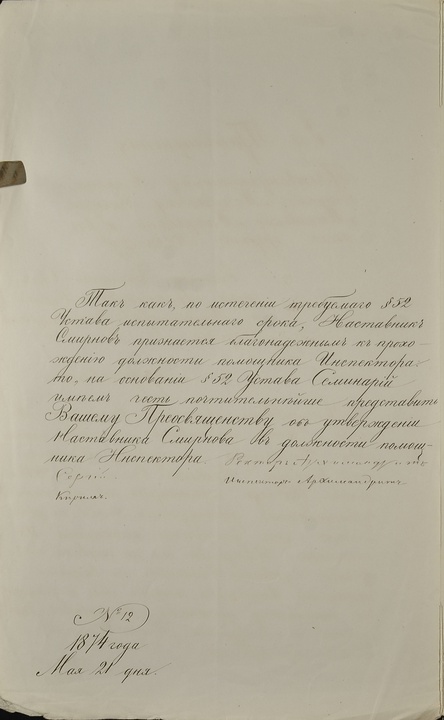 Такъ какъ, по истеченіи требуемаго § 52
Устава испытательнаго срока, Наставникъ
Смирновъ признается благонадежнымъ къ прохо-
жденію должности помощника Инспектора,
то, на основаніи § 52 Устава Семинарій
имѣемъ честь почтительнѣйше представить
Вашему Преосвященству объ утвержденіи
Наставника Смирнова въ должности помощ-
ника Инспектора. Ректоръ Архимандритъ
Сергій.
Инспекторъ Архимандритъ
Кириллъ.
№ 12
1874 года
Мая 21 дня.